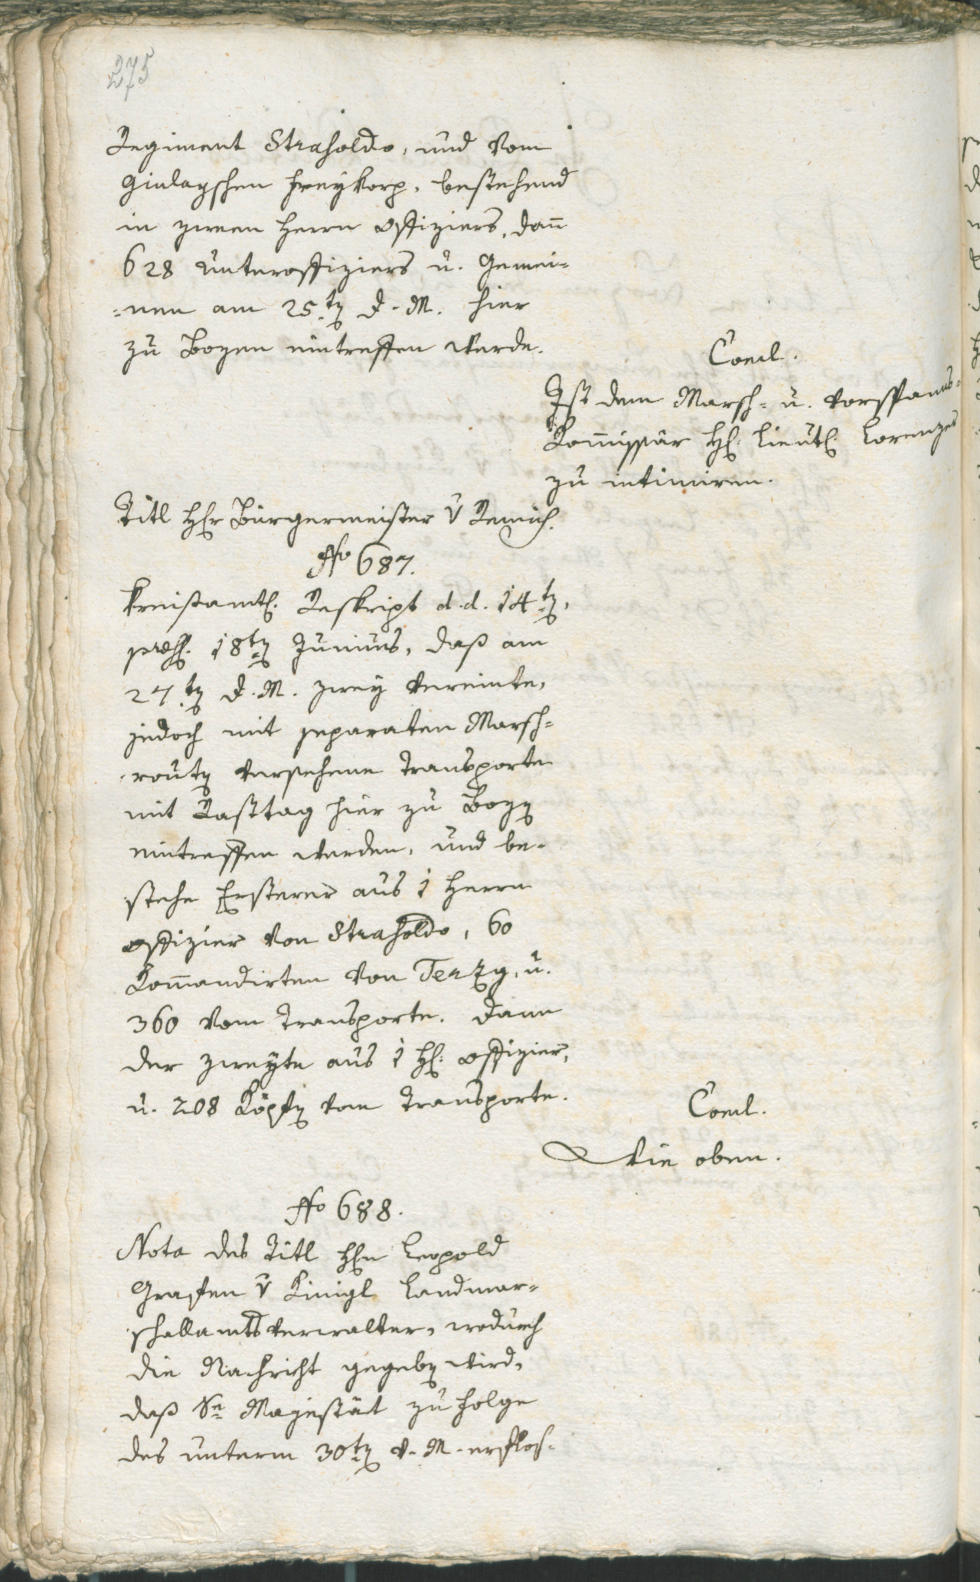 275
Regiment Straßoldo, und vom
Giulayschen Freykorp, bestehend
in zween Herrn Offiziers, dann
628 Unteroffiziers u. Gemei-
-nen am 25.ten d. M. hier
zu Bozen eintreffen werde.
Concl.
Ist dem Marsch- u. Vorspanns-
Kommissär H. Lieut. Lorenzes
zu intimiren.
Titl Hr Bürgermeister v
No 687.
Kreisamtl. Reskript d. d. 14ten,
präs. 18ten Junius, daß am
27.ten d. M. zwey vereinte,
jedoch mit separaten Marsch-
routen versehene Transporte
mit Rasttag hier zu Bozen
eintreffen werden, und be-
stehe Ersterer aus 1 Herrn
Offizier von Straßoldo, 60
Kommandirten von Terzy, u.
360 vom Transporte. Dann
der zweyte aus 1 H. Offizier,
u. 208 Köpfen vom Transporte.
Concl.
Wie oben.
No 688.
Nota des Titl Hrn Leopold
Grafen v Künigl Landmar-
schallamtsverwalter, wodurch
die Nachricht gegeben wird,
daß Se Majestät zu Folge
des unterm 30ten v. M. erflos-